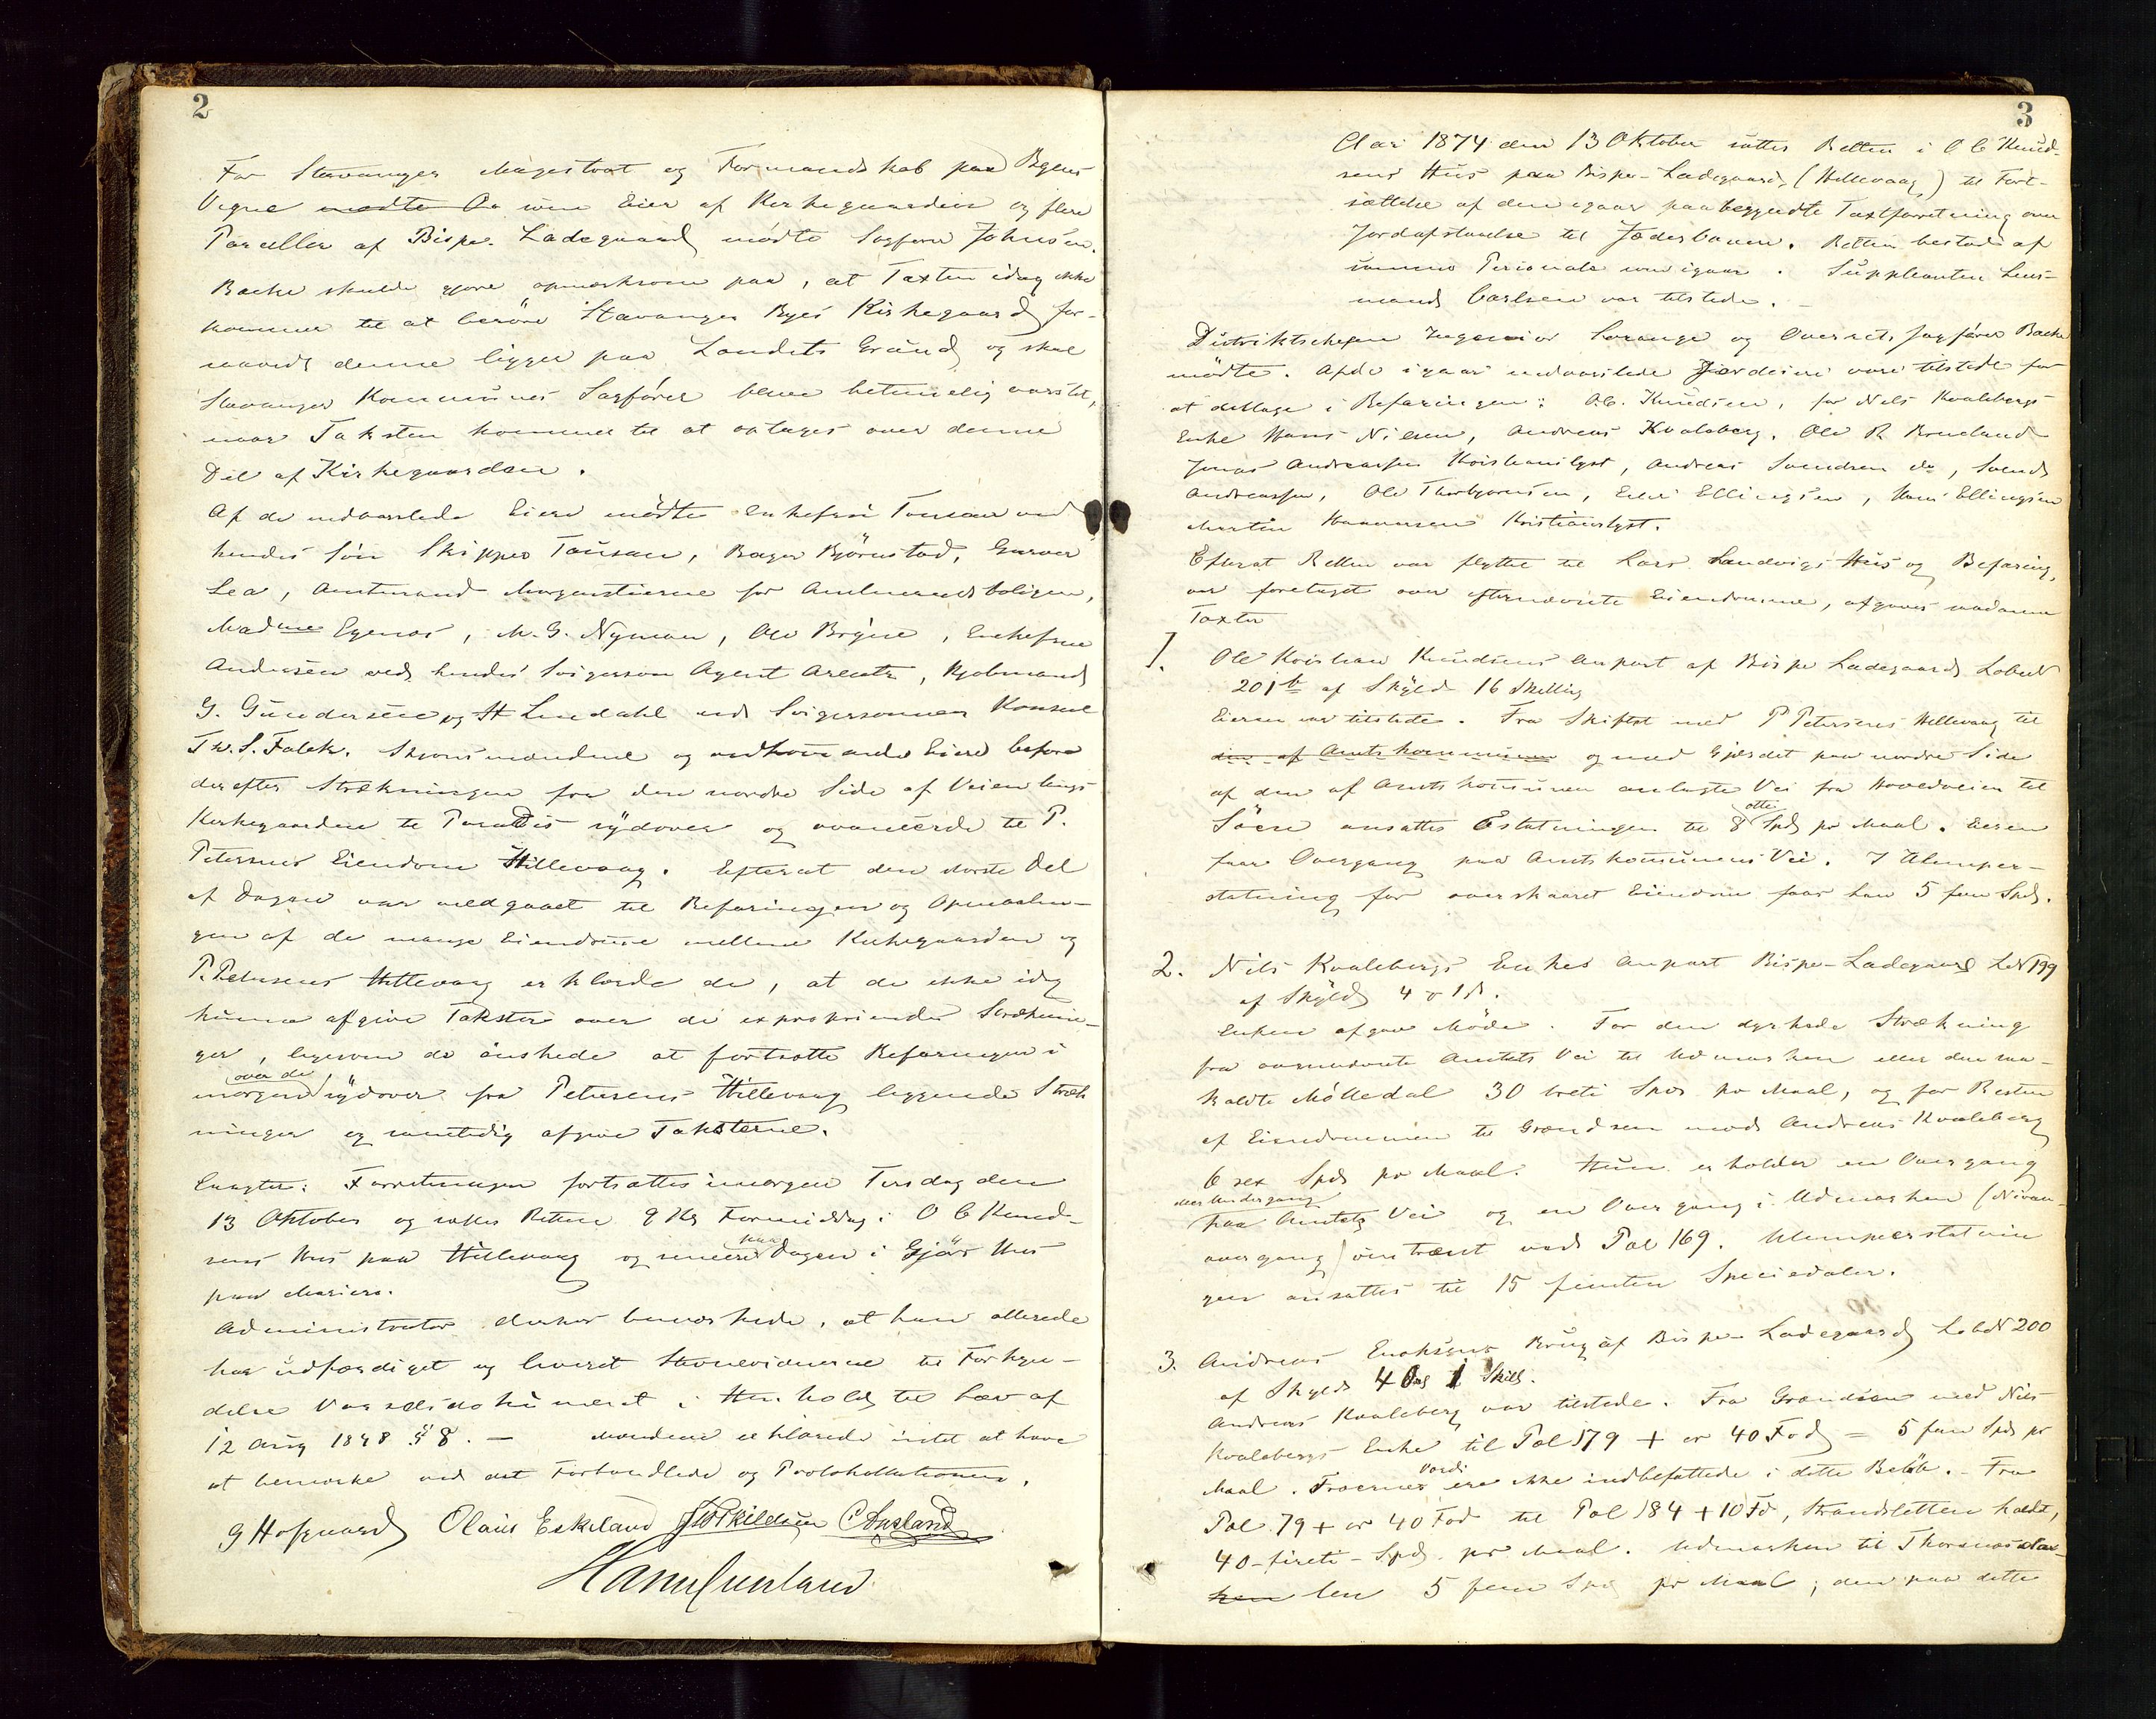 2
For Stavanger Magistrat og Formandskab paa Byens
Vegne mødte Aa som Eier af Kirkegaarden og flere
Parceller af Bispe-Ladegaard mødte Sagfører Johnsen.
Backe skulde gjøre opmærksom paa, at Taxten idag ikke
kommer til at berøre Stavanger Byes Kirkegaard for-
saavidt denne ligger paa Landets Grund og skal
Stavanger Kommunes Sagfører blive betimelig varslet,
naar Taksten kommer til at optages over denne
Del af Kirkegaarden.
Af de indvarslede Eiere mødte Enkefru Tousan ved
hendes Søn Skipper Tousan, Bager Bjørnstad, Garver
Lea, Amtmand Morgenstierne for Amtmandsboligen,
Madme Egenæs, M. G. Nyman, Ole Bryne, Enkefrue
Andersen ved hendes Svigersøn Agent Arentz, Kjøbmand
G. Gundersen og St Lindahl ved Svigersønnen Konsul
Th. S. Falck. Skjønsmændene og vedkommende Eiere before
derefter Strækningen fra den nordre Side af Veien langs
Kirkegaarden til Paradis sydover og avancerde til P.
Petersens Eiendom Hillevaag. Efterat den største Del
af Dagen var medgaaet til Befaringen og Opmaalin-
gen af de mange Eiendomme mellem Kirkegaarden og
P. Petersens Hillevaag erklærde de, at de ikke idag
kunne afgive Takster over de exproprierede Stræknin-
ger, ligesom de ønskede at fortsætte Befaringen i
over de
morgen sydover fra Petersens Hillevaag liggende Stræk
ninger og samtidig afgive Taksterne.
Eragtet: Forretningen fortsættes imorgen Tirsdag den
13 Oktober og sættes Retten 9 Kl Formiddag i O C Knud-
paa
sens Hus paa Hillevaag og senere Dagen i Gjærs Hus
paa Mariero.
Administrator derhos bemærkede, at han allerede
har udfærdiget og leveret Stævnevidnerne til Forkyn-
delse Varselsdokumentet i Henhold til Lov af
12 Aug 1848 § 8. — Mændene erklærede intet at have
at bemærke ved det Forhandlede og Protokollationen.
G Hofgaard Olaus Eskeland C Ausland
3
Aar 1874 den 13 Oktober sattes Retten i O C Knud-
sens Hus paa Bispe-Ladegaard, (Hillevaag) til Fort-
sættelse af den igaar paabegyndte Taxtforretning over
Jordafstaaelse til Jæderbanen. Retten bestod af
samme Personale som igaar. Suppleanten Lens-
mand Carlsen var tilstede. –
Distriktschefen Ingeniør Lorange og Overrets Sagfører Backe
mødte. Af de igaar indvarslede Jordeiere vare tilstede for
at deltage i Befaringen: O.C. Knudsen, for Nels Kvalebergs
Enke Hans Nilsen, Andreas Kvaleberg, Ole R. Brueland
Jonas Andreassen Kristianslyst, Andreas Svendsen do, Svend
Andreassen, Ole Thorbjørnsen, Ellingsen, Hans Ellingsen
Martin Hannesen Kristianslyst.
Efterat Retten var flyttet til Lars Sandvigs Hus og Befaring,
var foretaget over efternævnte Eiendomme, afgaves saadanne
Taxter
1. Ole Kristian Knudsens Anpart af Bispe Ladegaard, Løbe N
201 b af Skyld 16 Skilling
Eieren var tilstede. Fra Skiftet med P Petersens Hillevaag til
den af Amtskommunen og med Gjærdet paa nordre Side
af den af Amtskommunen anlagte Vei fra Hovedveien til
otte
Søen ansattes Erstatningen til 8 Spd pr Maal. Eieren
faar Overgang paa Amtskommunens Vei. I Ulemper-
statning for overskaaret Eiendom faar han 5 fem Spd.
2. Nils Kvalebergs Enkes Anpart Bispe-Ladegaard L. N 199
af Skyld 4 1
Enken afgav Møde. For den dyrkede Strækning
fra ovennævnte Amtets Vei til Udmarken eller den saa-
kaldte Mølledal 30 treti Spd pr Maal, og for Resten
af Eiendommen til Grændsen mod Andreas Kvaleberg
6 sex Spd pr Maal. Hun erholder en Overgang
eller Undergang
paa Amtets Vei og en Overgang i Udmarken (Niveau-
overgang) omtrent ved Pæl 169. Ulemperstatnin
gen ansattes til 15 femten Speciedaler.
3. Andreas Enoksens Brug af Bispe-Ladegaard Løb N 200
af Skyld 4 Ort 1 Skill.
Andreas Kvaleberg var tilstede. Fra Grændsen med Nils
Kvalebergs Enke til Pæl 179 + er 40 Fod = 5 fem Spd pr
Værdi
Maal. Træernes ere ikke indbefattede i dette Beløb. – Fra
Pæl 79 + er 40 Fod til Pæl 184 + 10 Fd, Strandsletten kaldt,
40 – fireti – Spd. pr Maal. Udmarken til
ken len 5 fem Spd pr Maal; den paa dette